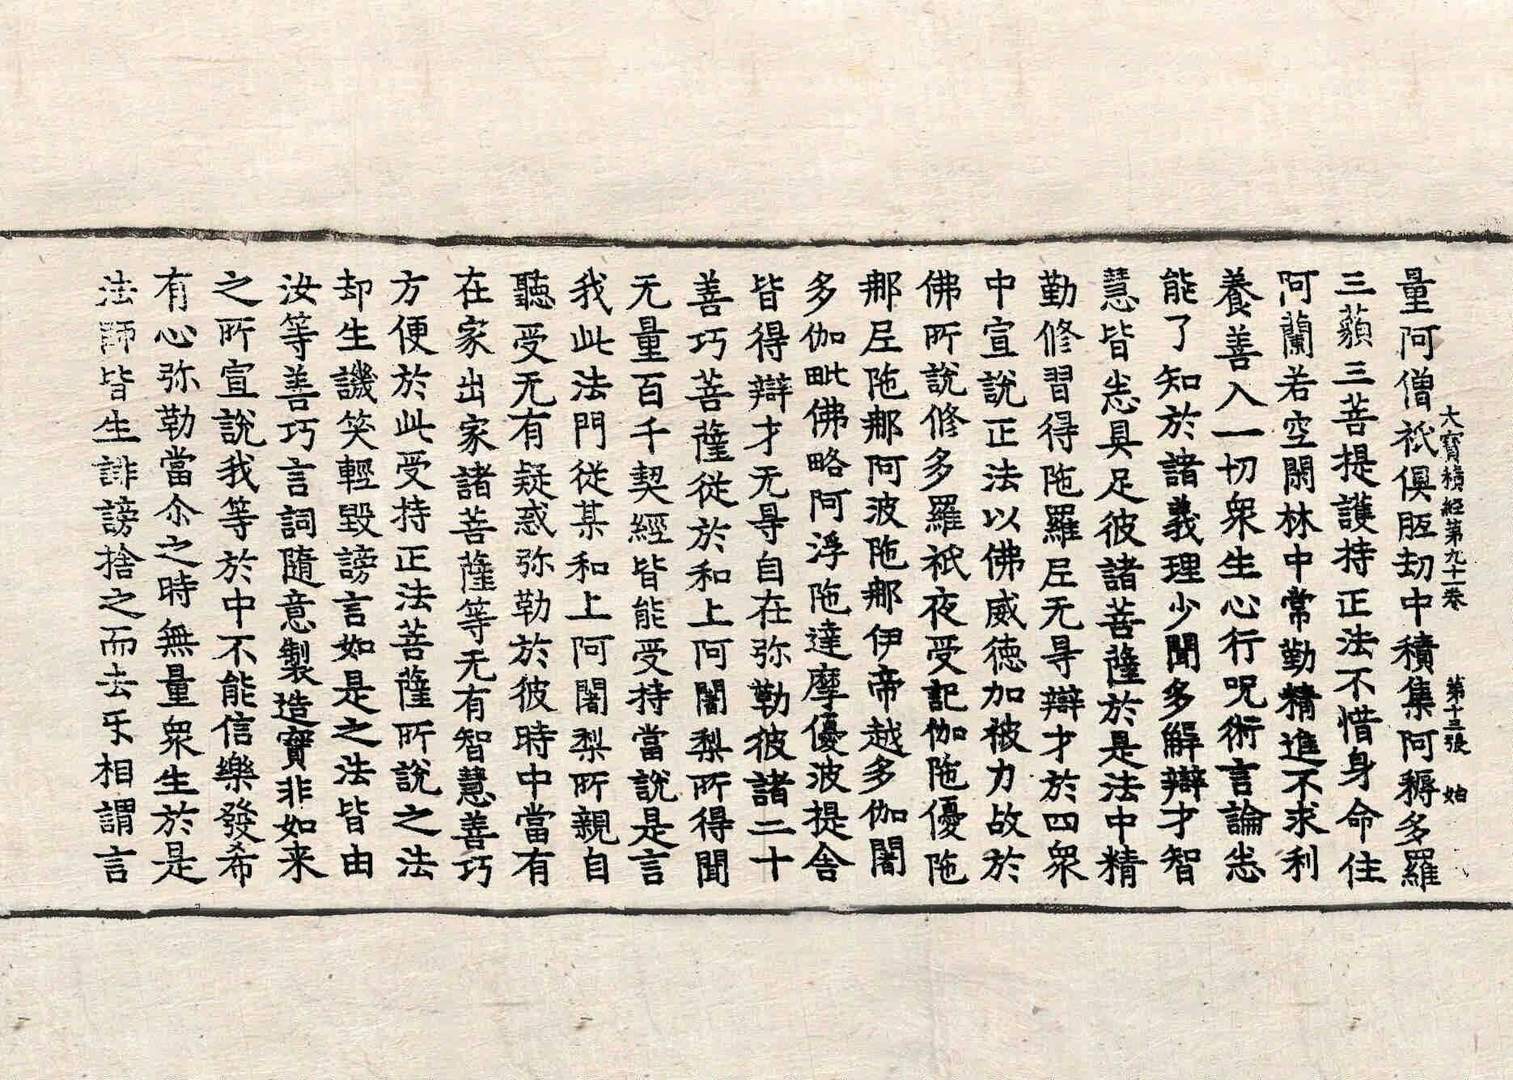 大寶積經第九十一卷 第十三張 始
量阿僧祇俱胝劫中積集阿耨多羅
三藐三菩提護持正法不惜身命住
阿蘭若空閑林中常勤精進不求利
養善入一切衆生心行呪術言論悉
能了知於諸義理少聞多解辯才智
慧皆悉具足彼諸菩薩於是法中精
勤修習得陁羅尼无㝵辯才於四衆
中宣說正法以佛威德加被力故於
佛所說修多羅祇夜受記伽陁優陁
那尼陁那阿波陁那伊帝越多伽闍
多伽毗佛略阿浮陁達摩優波提舍
皆得辯才无㝵自在弥勒彼諸二十
善巧菩薩從於和上阿闍梨所得聞
无量百千契經皆能受持當說是言
我此法門從某和上阿闍梨所親自
聽受无有疑惑弥勒於彼時中當有
在家出家諸菩薩等无有智慧善巧
方便於此受持正法菩薩所說之法
却生譏笑輕毀謗言如是之法皆由
汝等善巧言詞隨意製造實非如来
之所宣說我等於中不能信樂發希
有心弥勒當尒之時無量衆生於是
法師皆生誹謗捨之而去㸦相謂言